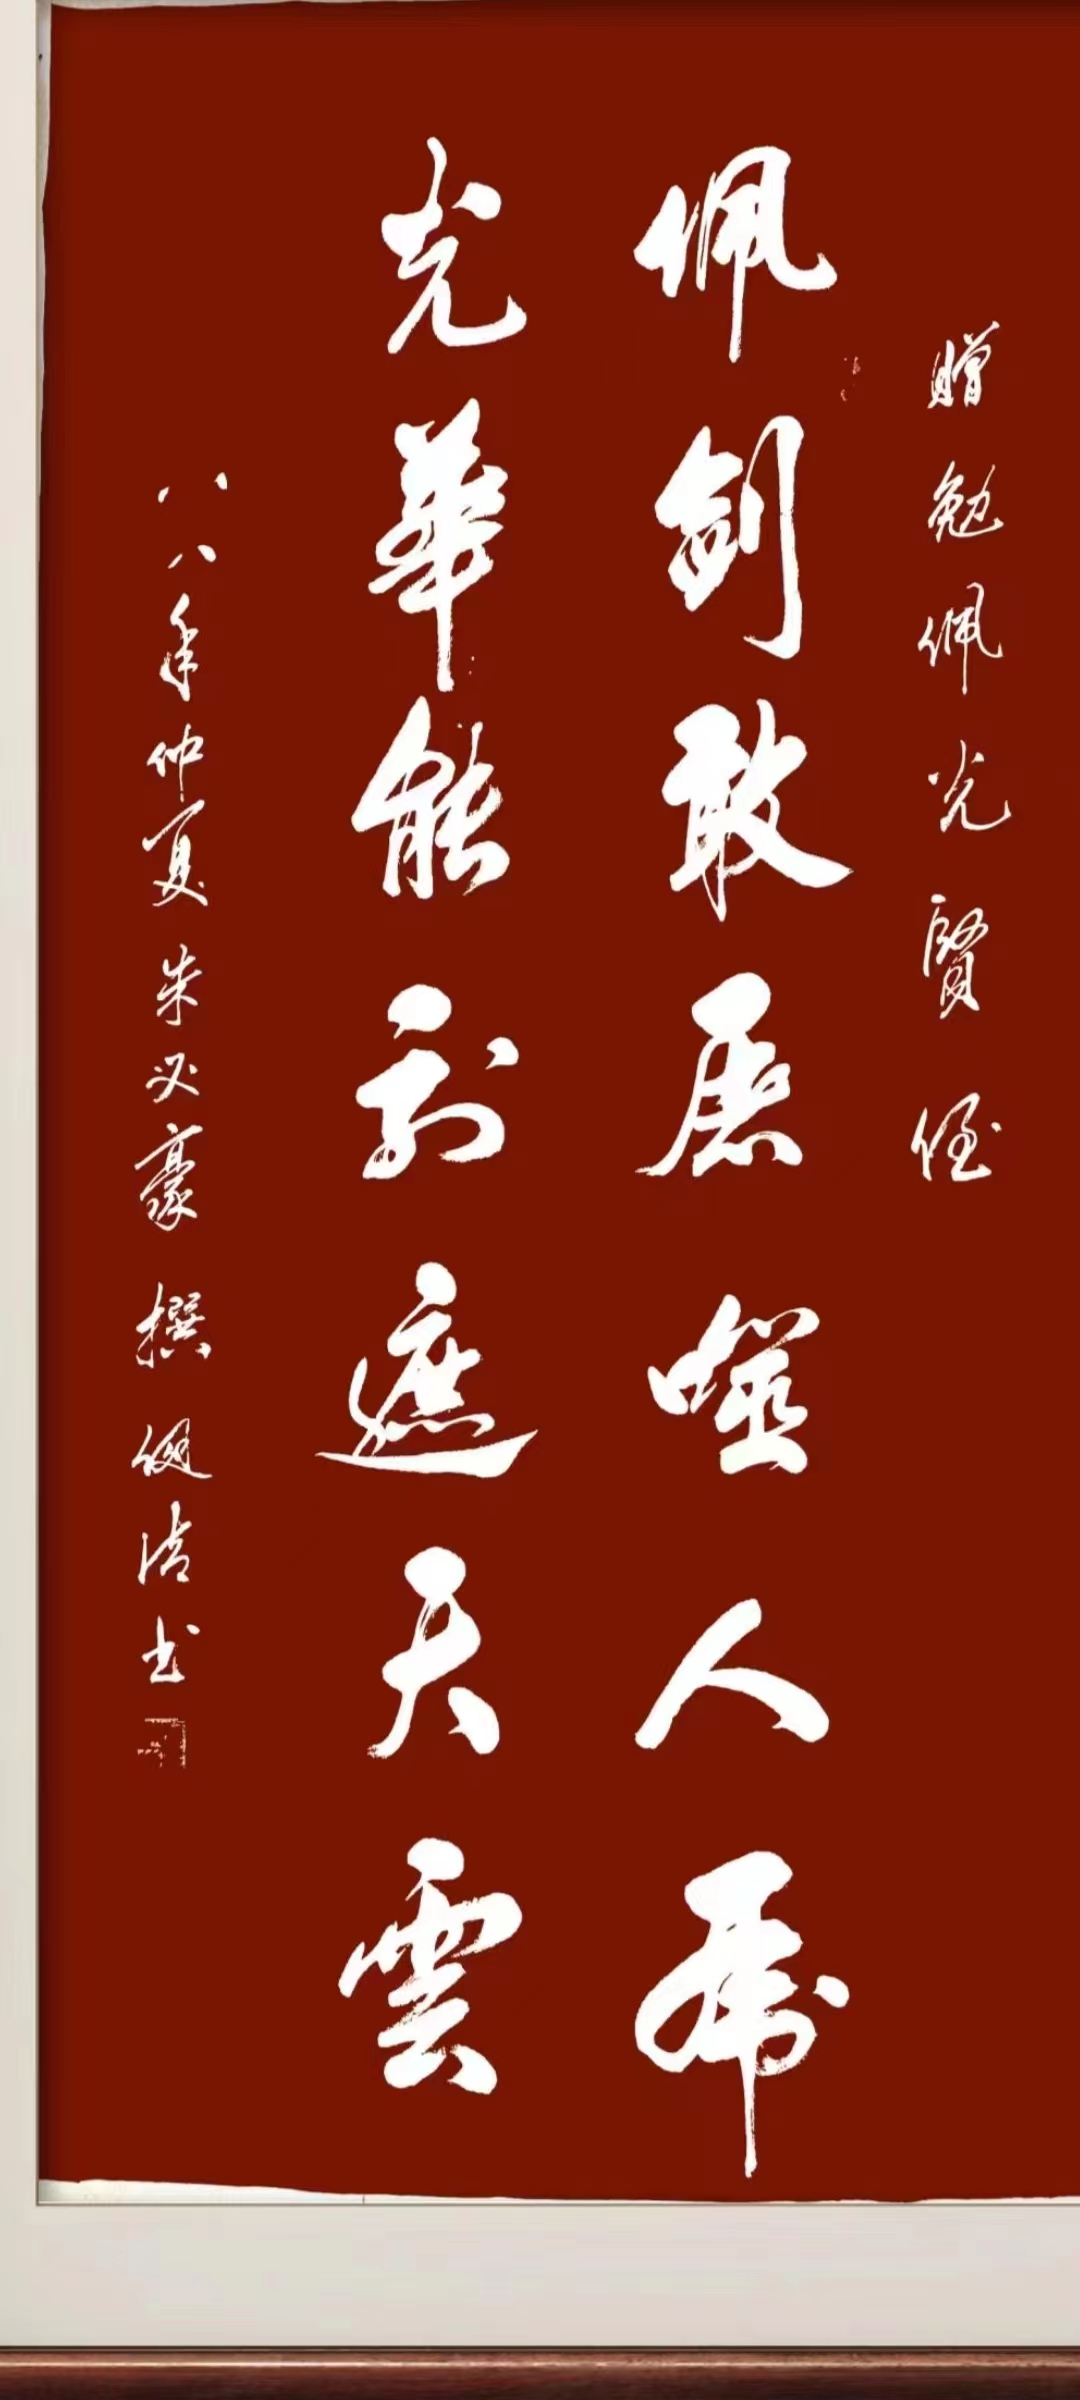 贈勉佩光賢侄
佩劍敢屠噬人虎
光華能遮天雲
八八年仲夏朱必豪撰书